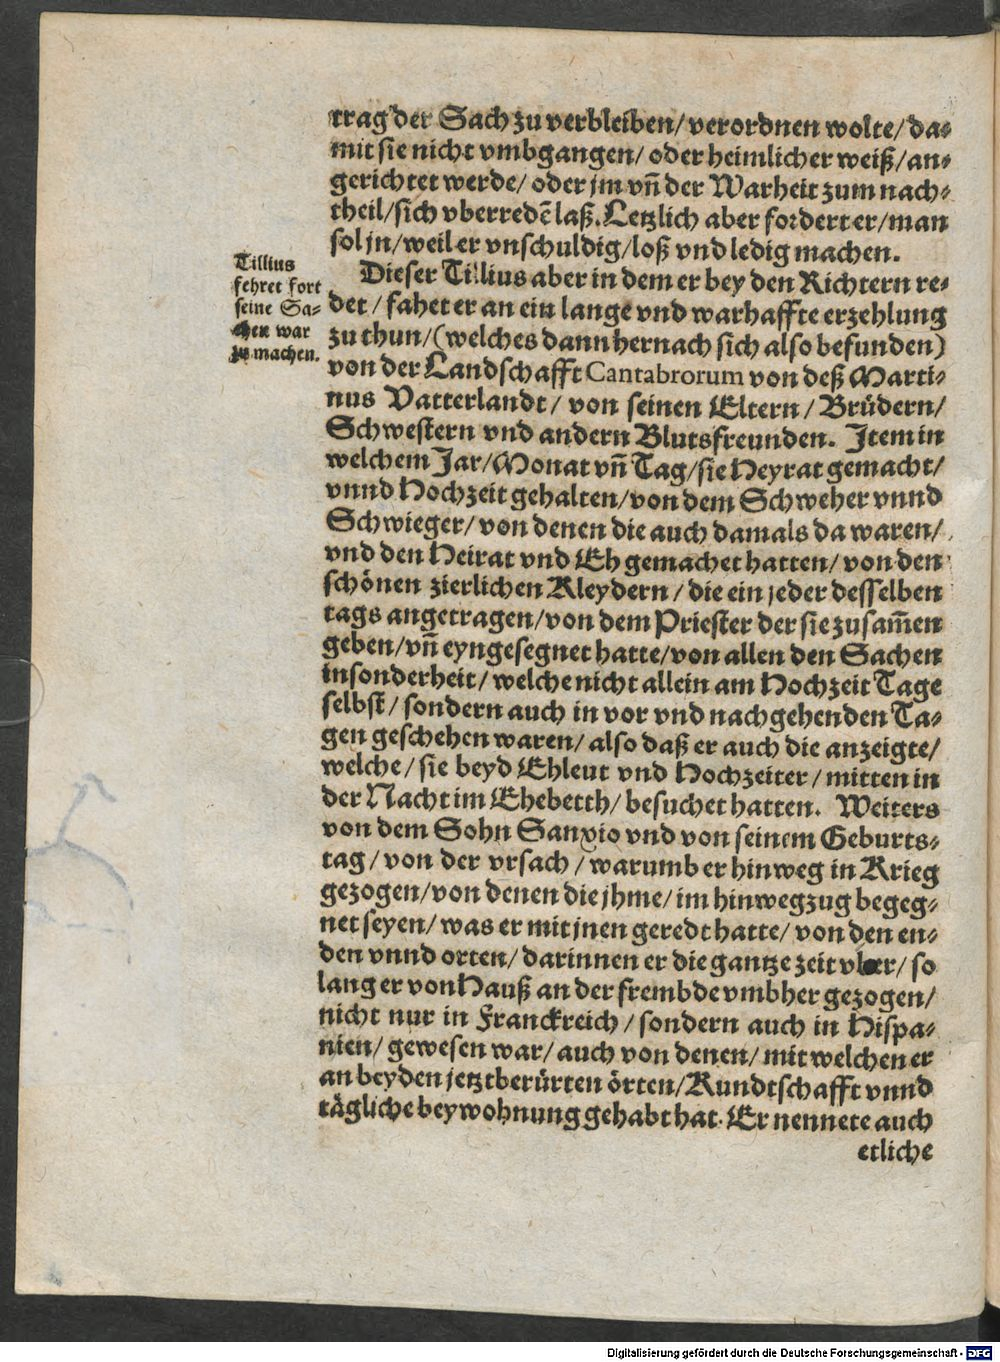 trag der Sach zu verbleiben/ verordnen wolte/ da-
mit sie nicht vmbgangen/ oder heimlicher weiß/ an-
gerichtet werde/ oder jm vñ der Warheit zum nach-
theil/ sich vberredẽ laß. Letzlich aber fordert er/ man
sol jn/ weil er vnschuldig/ loß vnd ledig machen.
Tillius
fehret fort
seine Sa-
chen war
zu machen.
Dieser Tillius aber in dem er bey den Richtern re-
det/ fahet er an ein lange vnd warhaffte erzehlung
zu thun/ (welches dann hernach sich also befunden)
von der Landschafft Cantabrorum von deß Marti-
nus Vatterlandt/ von seinen Eltern/ Brüdern/
Schwestern vnd andern Blutsfreunden. Item in
welchem Jar/ Monat vñ Tag/ sie Heyrat gemacht/
vnnd Hochzeit gehalten/ von dem Schweher vnnd
Schwieger/ von denen die auch damals da waren/
vnd den Heirat vnd Eh gemachet hatten/ von den
schönen zierlichen Kleydern/ die ein jeder desselben
tags angetragen/ von dem Priester der sie zusam̃en
geben/ vñ eyngesegnet hatte/ von allen den Sachen
insonderheit/ welche nicht allein am Hochzeit Tage
selbst/ sondern auch in vor vnd nachgehenden Ta-
gen geschehen waren/ also daß er auch die anzeigte/
welche/ sie beyd Ehleut vnd Hochzeiter/ mitten in
der Nacht im Ehebetth/ besuchet hatten. Weiters
von dem Sohn Sanxio vnd von seinem Geburts-
tag/ von der vrsach/ warumb er hinweg in Krieg
gezogen/ von denen die jhme/ im hinwegzug begeg-
net seyen/ was er mit jnen geredt hatte/ von den en-
den vnnd orten/ darinnen er die gantze zeit vber/ so
lang er von Hauß an der frembde vmbher gezogen/
nicht nur in Franckreich/ sondern auch in Hispa-
nien/ gewesen war/ auch von denen/ mit welchen er
an beyden jetztberürten örten/ Kundtschafft vnnd
tägliche beywohnung gehabt hat. Er nennete auch
etliche
Digitalisierung gefördert durch die Deutsche Forschungsgemeinschaft - DFG